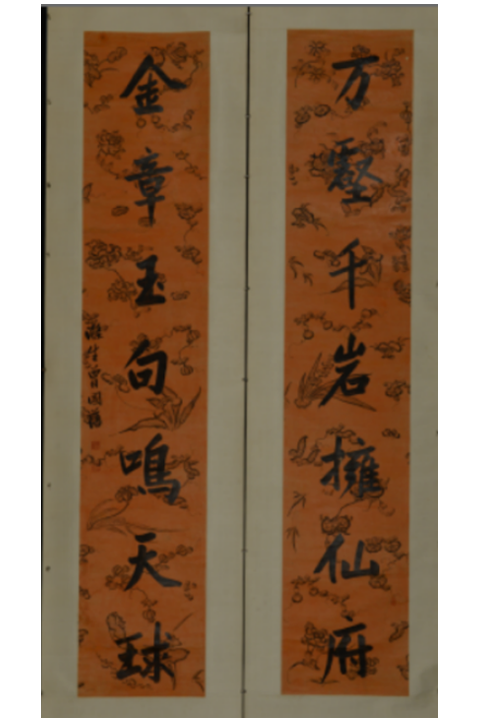 万壑千岩擁仙府
金章玉句鳴天球
滌生曾国藩